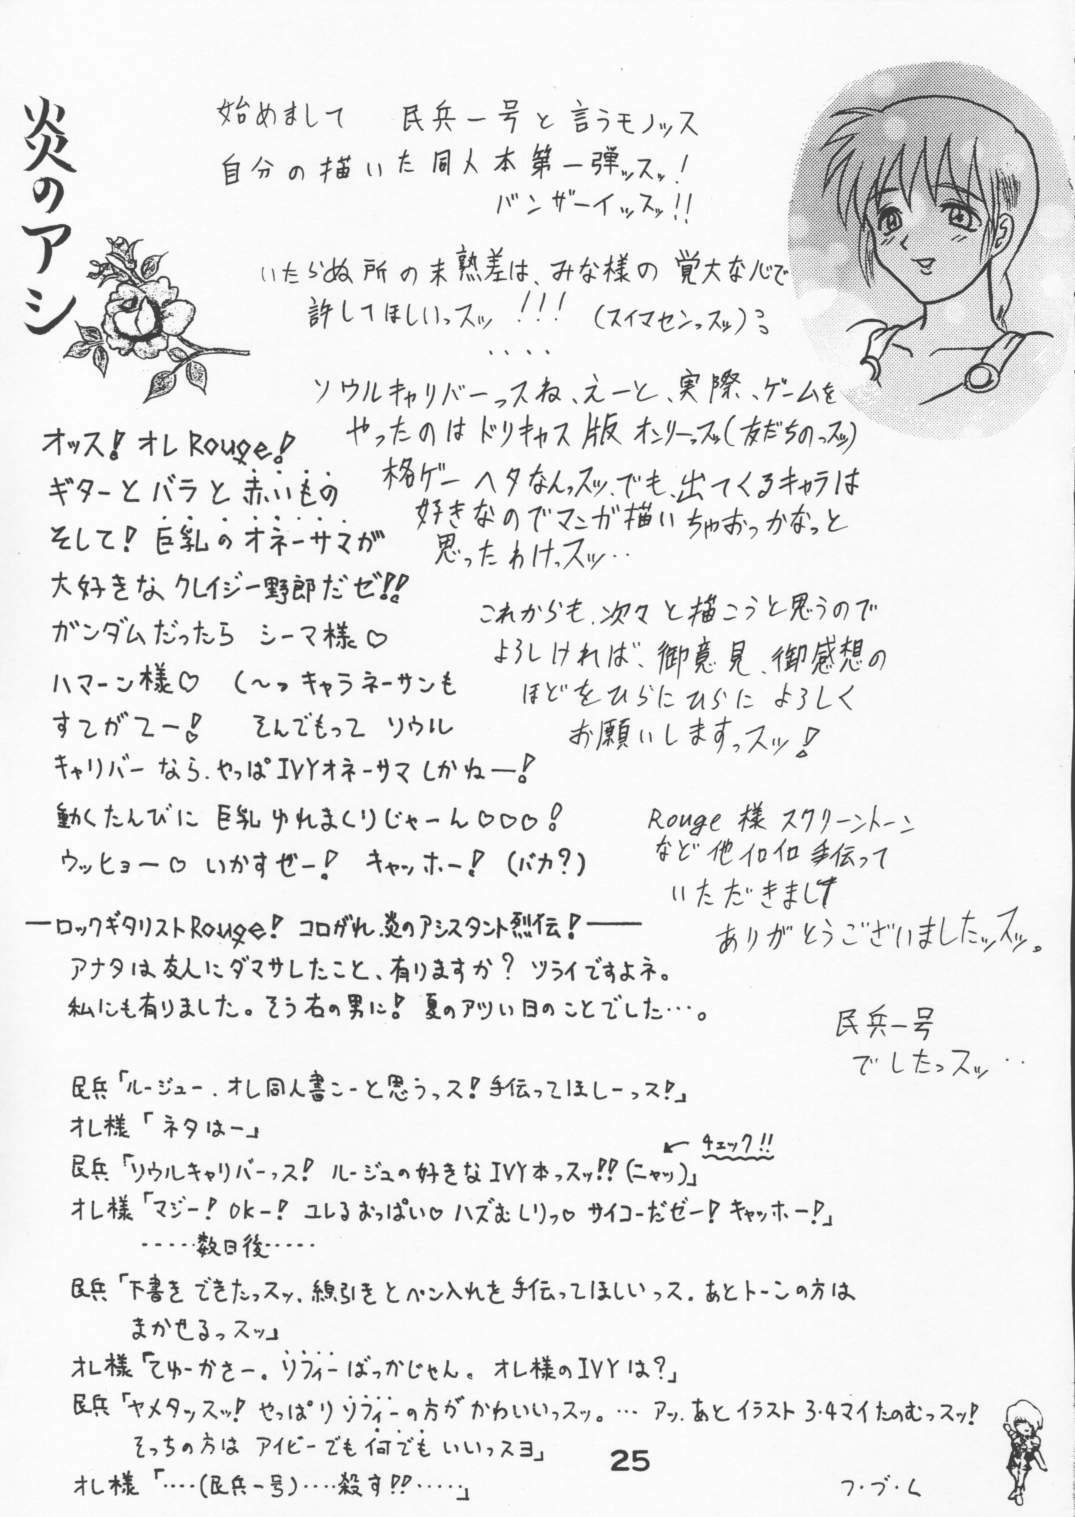 始めまして 民兵一号と言うモノッス
自分の描いた同人本第一弾ッスッ!
バンザーイッスッ!!
いたらぬ所の未熟差は、みな様の覚大な心で
許してほしいっスッ!!! (スイマセンっスッ)
‥‥
ソウルキャリバーっスね、えーと、実際、ゲームを
やったのはドリキャス版オンリーっスッ(友だちのっスッ)
格ゲーヘタなんっスッ、でも、出てくるキャラは
好きなのでマンガ描いちゃおっかなっと
思ったわけっスッ‥
これからも、次々と描こうと思うので
よろしければ、御意見、御感想の
ほどをひらにひらによろしく
お願いしますっスッ!
Rouge様 スクリーントーン
など他イロイロ手伝って
いただきまして
ありがとうございましたッスッ。
民兵一号
でしたっスッ‥
炎のアシ
オッス!オレRouge!
ギターとバラと赤いもの
そして!巨乳のオネーサマが
大好きなクレイジー野郎だゼ!!
ガンダムだったら シーマ様♡
ハマーン様♡ (〜っキャラネーサンも
すてがてー! そんでもって ソウル
キャリバーなら、やっぱIVYオネーサマしかねー!
動くたんびに 巨乳ゆれまくりじゃーん♡♡♡!
ウッヒョー♡ いかすぜー! キャッホー! (バカ?)
―ロックギタリストRouge! コロがれ、炎のアシスタント烈伝!―
アナタは友人にダマサレたこと、有りますか? ツライですよネ。
私にも有りました。そう右の男に! 夏のアツい日のことでした…。
民兵「ルージュー、オレ同人書こーと思うっス!手伝ってほしーっス!」
オレ様「ネタはー」
チェック!!
民兵「ソウルキャリバーっス! ルージュの好きなIVY本っスッ!!(ニャッ)」
オレ様「マジー!OKー! ユレるおっぱい♡ハズむしりっ♡ サイコーだゼー!キャッホー!」
‥‥‥数日後‥‥‥
民兵「下書きできたっスッ、線引きとペン入れを手伝ってほしいっス、あとトーンの方は
まかせるっスッ」
オレ様「てゆーかさー。ソフィーばっかじゃん。オレ様のIVYは?」
民兵「ヤメタッスッ! やっぱりソフィーの方がかわいいっスッ。… アッ、あとイラスト3・4マイたのむっスッ!
そっちの方はアイビーでも何でもいいっスヨ」
オレ様「‥‥(民兵一号)‥‥殺す!!‥‥‥」
25
フ・ブ・ム